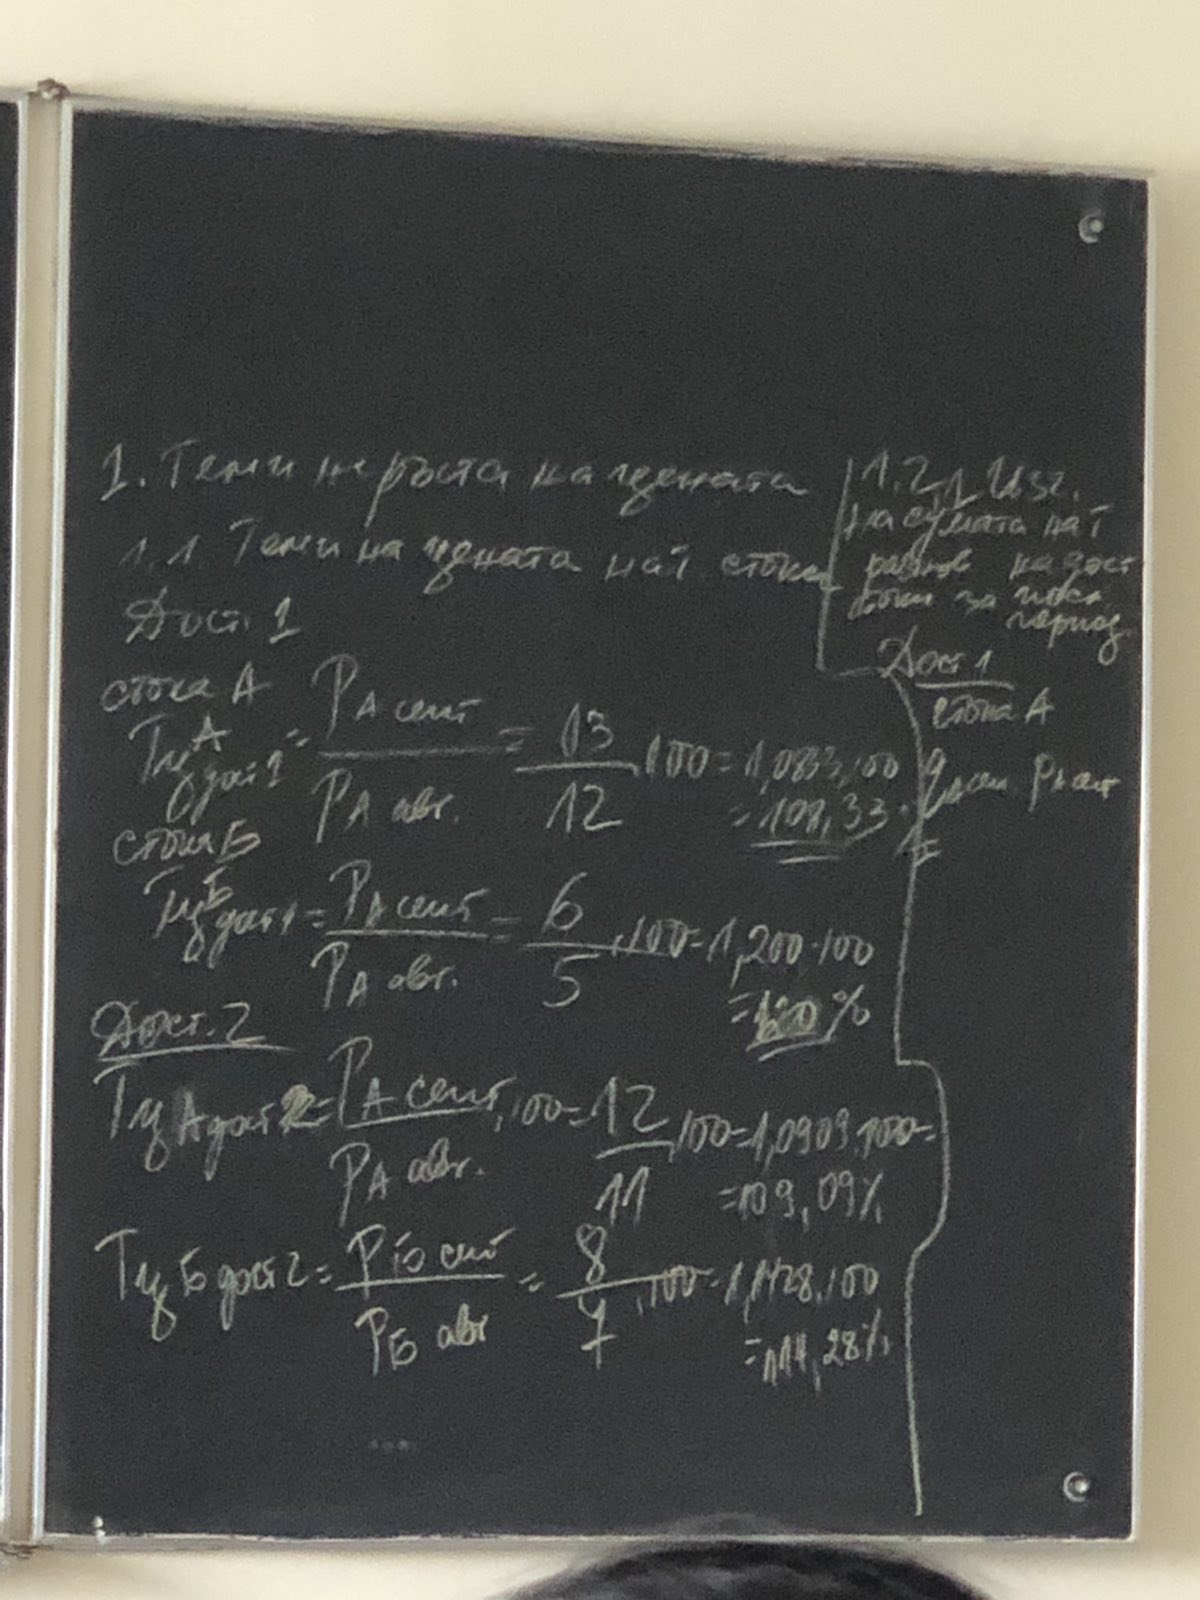 1. Темп на ръста на цената
1.1. Темп на цената на 1 стока
Дост. 1
стока А
Тц А дост 1 = РА септ / РА авг. = 13 / 12 . 100 = 1,0833.100
= 108,33 %
стока Б
Тц Б дост 1 = РА септ / РА авг. = 6 / 5 . 100 = 1,200.100
= 120 %
Дост. 2
Тц А дост 2 = РА септ / РА авг. . 100 = 12 / 11 . 100 = 1,0909.100 =
= 109,09%
Тц Б дост 2 = РБ септ / РБ авг = 8 / 7 . 100 = 1,1428.100
= 114,28%
...
1.2.1 Изч.
на сумата на 1
за
период.
Дост 1
стока А
РА септ